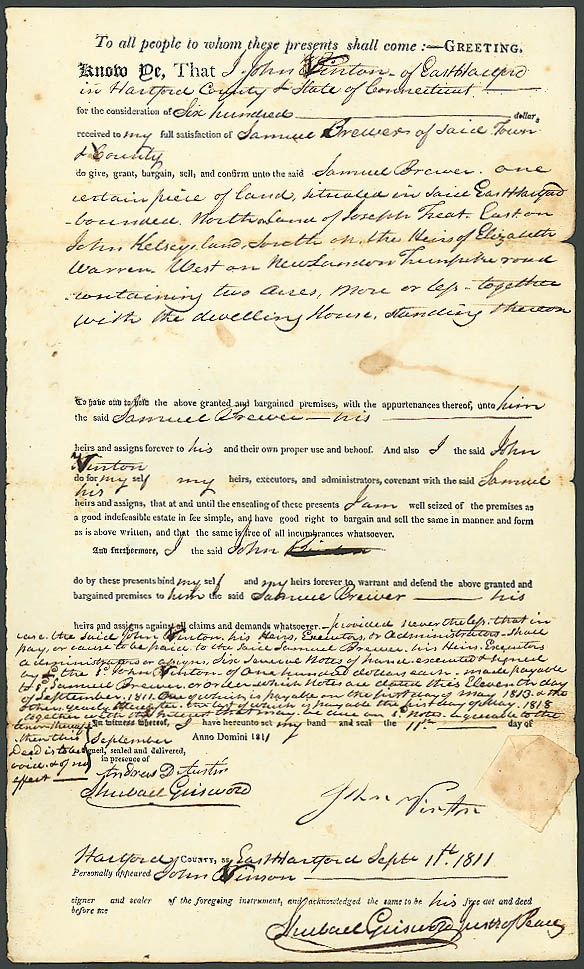 To all people to whom these presents shall come:—GREETING.
Know Ye, That I John Vinton of East Hartford
in Hartford County & State of Connecticut
for the consideration of Six hundred dollars
received to my full satisfaction of Samuel Brewer of said Town
& County
do give, grant, bargain, sell, and confirm unto the said Samuel Brewer. one
certain piece of land, situated in said East Hartford
bounded. North on land of Joseph Treat. East on
John Kelsey land, South on the Heirs of Elizabeth
Warren. West on New London Turnpike road
containing two Acres, more or less - together
with the dwelling House, standing thereon
To have and to hold the above granted and bargained premises, with the appurtenances thereof, unto him
the said Samuel Brewer — his
heirs and assigns forever to his and their own proper use and behoof. And also I the said John
Vinton
do for my self my heirs, executors, and administrators, covenant with the said Samuel
his
heirs and assigns, that at and until the ensealing of these presents I am well seized of the premises as
a good indefeasible estate in fee simple, and have good right to bargain and sell the same in manner and form
as is above written, and that the same is free of all incumbrances whatsoever.
And furthermore, I the said John Vinton
do by these presents bind my self and my heirs forever to warrant and defend the above granted and
bargained premises to him the said Samuel Brewer — his
heirs and assigns against all claims and demands whatsoever.— provided nevertheless that in
case the said John Vinton, his Heirs, Executors, or Administrators shall
pay, or cause to be paid to the said Samuel Brewer his Heirs. Executors
Administrators or assigns, six several Notes of hand executed & signed
by sd. John Vinton of One hundred dollars each. made payable
to sd. Samuel Brewer, or order which Notes are dated this Eleventh day
of September. 1811. One of which is payable on the first day of May 1813. & the
others yearly thereafter the last of which is payable the first day of May. 1818
together with the interest that may be due on sd. Notes. agreeable to the
tenor thereof
then this Deed is to be void. & of no effect —
In witness whereof, I have hereunto set my hand and seal the 11th day of
September Anno Domini 1811
Signed, sealed and delivered,
in presence of
Andrew D Austin
Shubael Griswold
John Vinton
Hartford County, ss. East Hartford Septr 11th. 1811
Personally appeared John Vinson
signer and sealer of the foregoing instrument, and acknowledged the same to be his free act and deed
before me
Shubael Griswold Justs of Peace